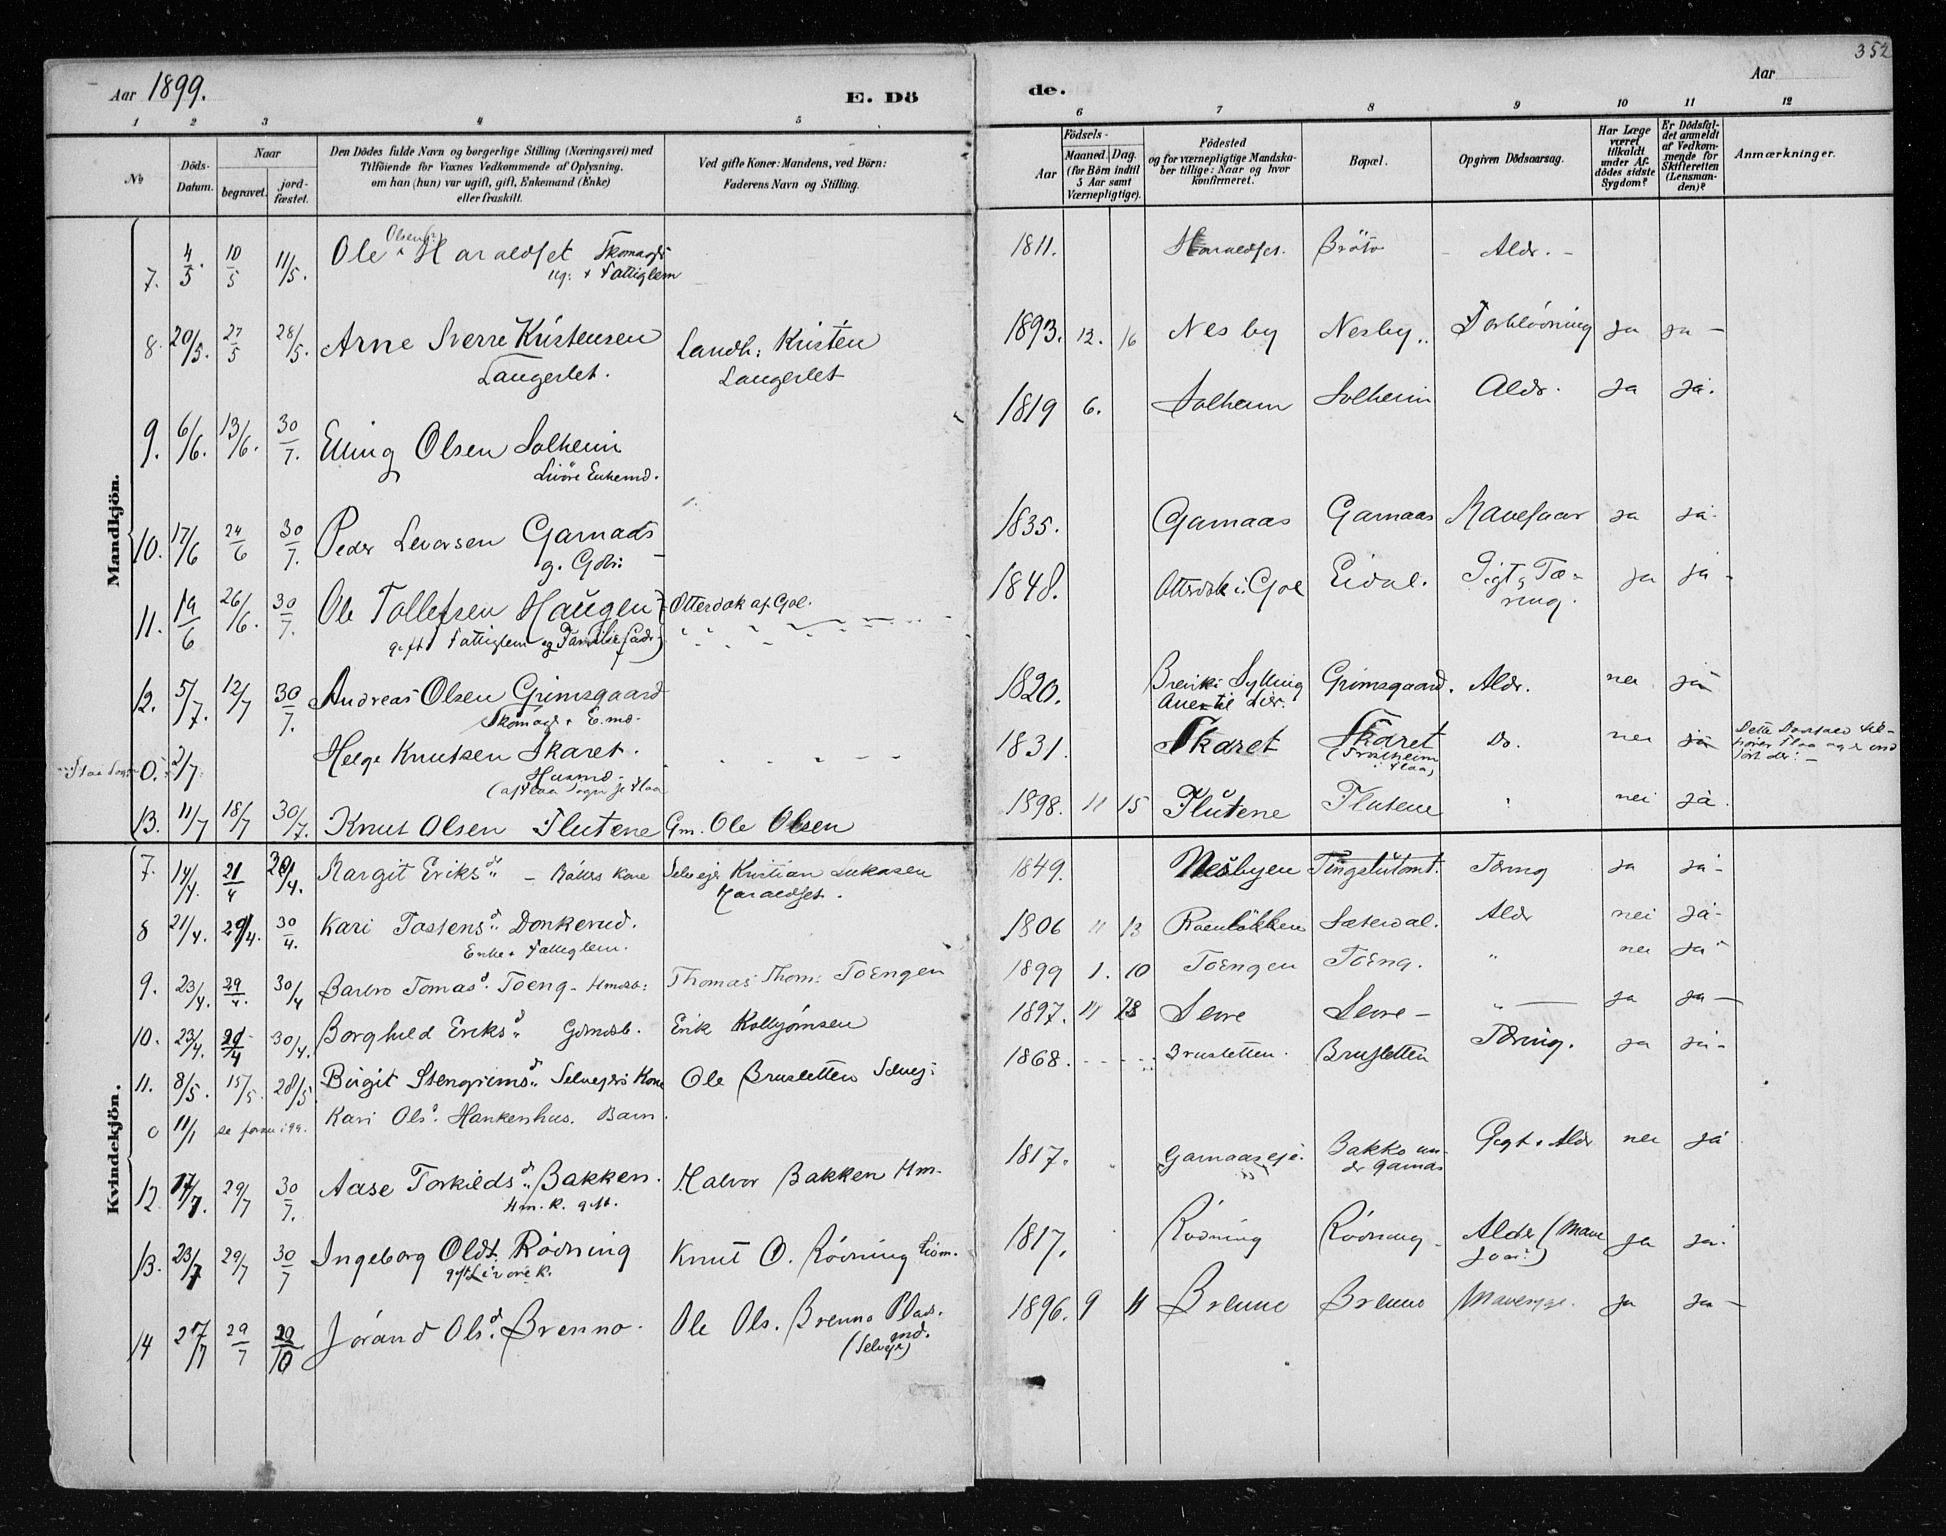 352
Aar 1899.
E. Dö
de.
Aar
1 2 3 4 5 6 7 8 9 10 11 12
No
Döds-Datum.
Naar
begravet.
jord-fæstet.
Den Dödes fulde Navn og borgerlige Stilling (Næringsvei) med
Tilföiende for Voxnes Vedkommende af Oplysning,
om han (hun) var ugift, gift, Enkemand (Enke)
eller fraskilt.
Ved gifte Koner: Mandens, ved Börn:
Faderens Navn og Stilling.
Födsels-
Aar
Maaned. Dag.
(for Börn indtil
5 Aar samt
Værnepligtige).
Födested
og for værnepligtige Mandska-
ber tillige: Naar og hvor
konfirmeret.
Bopæl.
Opgiven Dödsaarsag.
Har Læge
været
tilkaldt
under Af-
dödes sidste
Sygdom?
Er Dödsfal-
det anmeldt
af Vedkom-
mende for
Skifteretten
(Lensman-
den)?
Anmærkninger.
Mandkjön.
7. 4/5. 10/5 11/5. Ole Olsen Haraldset 1811. Haraldset. Bröto - Aldr. -
ug. + Fattiglem
8. 20/5. 27/5 28/5. Arne Sverre Kristensen Landh: Kristen 1893. 12. 16 Nesby Nesby.. Forblövning ja ja -
Laugerlet. Laugerlet
9. 6/6. 13/6. 30/7. Elling Olsen Solheim 1819 6. Solheim Solheim Aldr. ja ja.
Livöre Enkemd.
10. 17/6 24/6 30/7. Peder Leversen Garnaas 1835. Garnaas Garnaas Mavesaar ja ja.
g. Gbr: -
11. 19/6 26/6. 30/7. Ole Tollefsen Haugen Otterdok af Gol. 1848. Otterdok i Gol Eidal. Gigt, Tæ-
ring. ja ja -
gift Fattiglem og Familiefader)
12. 5/7. 12/7 30/7. Andreas Olsen Grimsgaard 1820. Sylling Grimsgaard. Aldr. nei ja
Skomagr + E.md. Lier.
0. 2/7. Helge Knutsen Skaret. 1831. Skaret Skaret Do. nei ja Dette
Husmd. i Flaa)
(af Flaa Sogn
13. 11/7 18/7 30/7. Knut Olsen Flutene Gm. Ole Olsen 1898. 11 15 Flutene Flutene nei ja.
Kvindekjön.
7. 14/4. 21/4 30/4. Margit Eriksd. - Kone Selvejer Kristian Lukasen 1849. Nesbyen Tingslutomt. Tæring ja ja -
Haraldset.
8 21/4. 29/4. 30/4. Kari Tostensd. Donkerud. 1806 11 13 Roenløkken Sæterdal. Aldr nei ja -
Enke + Fattiglem.
9. 23/4. 29/4. 30/4 Barbro Tomasd. Toeng - Hmdsb: Thomas Thom: Toengen 1899 1. 10 Toengen Toeng. " nei ja
10. 23/4. 29/4 30/4. Borghild Eriksd. Gdmdsb. Erik Kolbjörnsen 1897. 11 28 Sevre Sevre - " ja ja -
11. 8/5. 15/5. 28/5. Birgit Stengrimsd. Selvejers Kone Ole Brusletten Selvej: 1868. Brusletten. Brusletten Tæring. ja ja -
0 11/1 se foran i 99. Kari Olsd. Hankenhus. Barn.
12 17/7. 29/7 30/7. Aase Torkildsd. Bakken. Halvor Bakken Hm. 1817. Garnaaseje. Bakko un-
der Garnas Gigt + Aldr nei ja
Hm. K. gift.
13. 23/7 29/7 30/7 Ingeborg Oldt. Rödning Knut O. Rödning 1817. Rödning Rödning Alder (Mave
ja ja.
gift Livörek.
14 27/7 29/7 29/10 Jörand Olsd. Brenno. Ole Ols. Brenno Plads. 1896. 9 11 Brenno Brenno ja ja -
md.
(Selvejer)